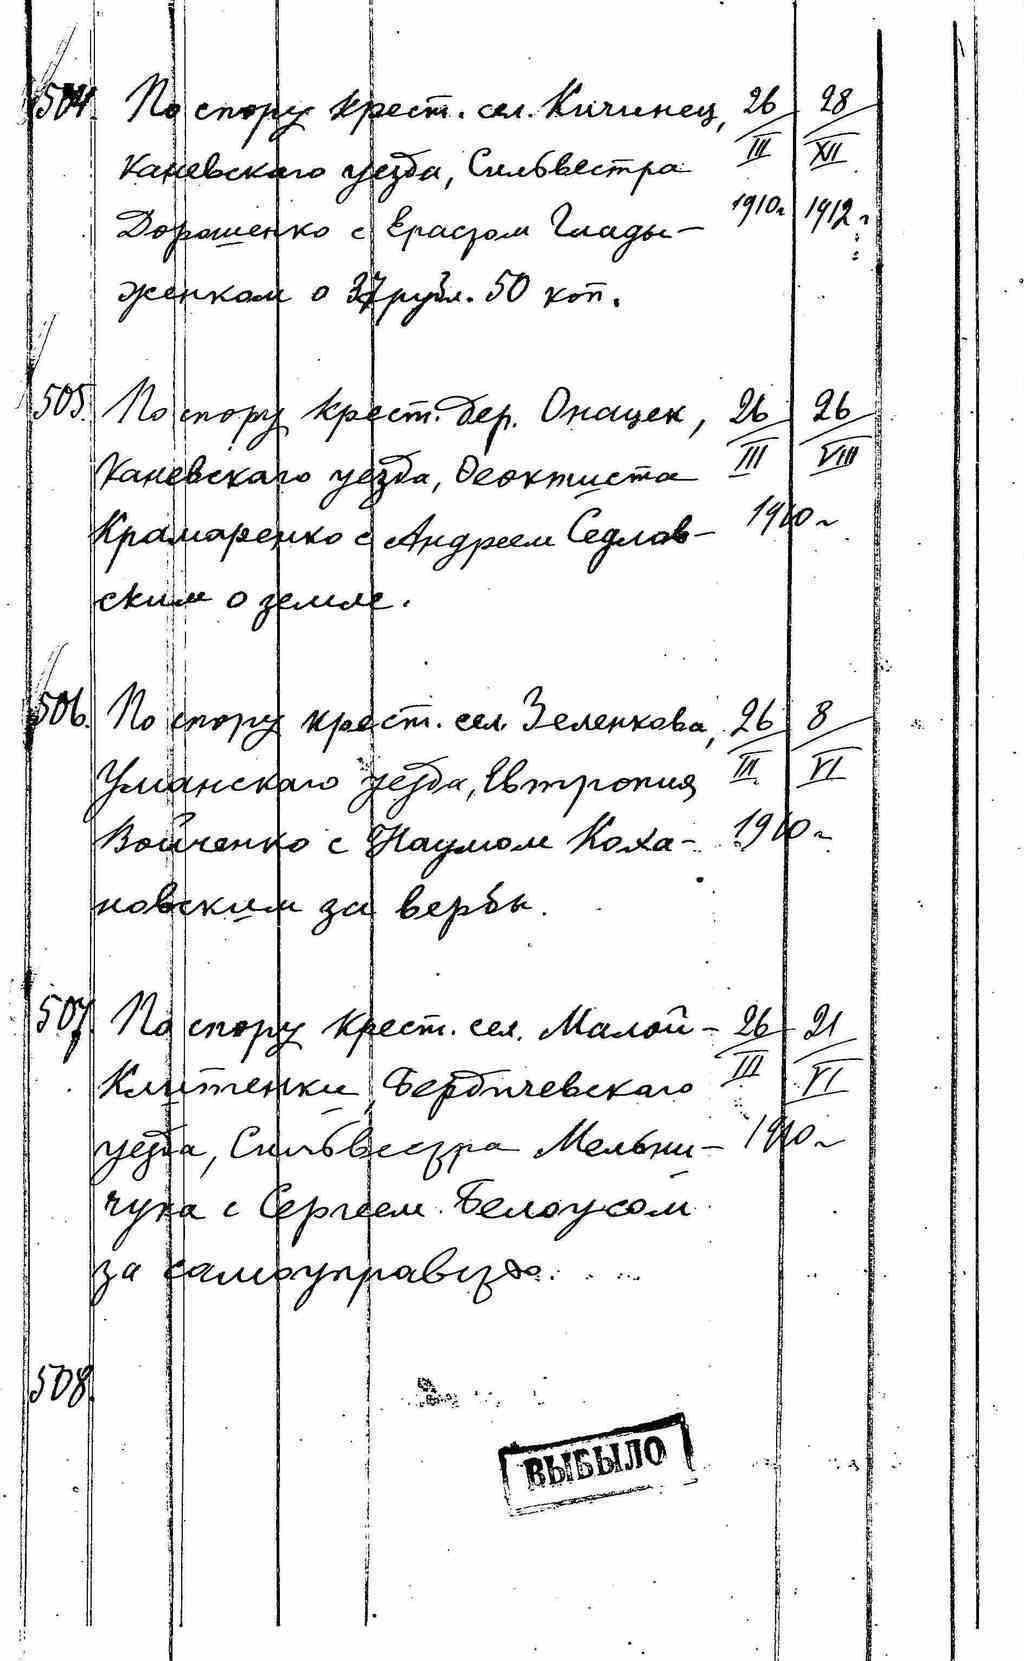 504. По спору крест. сел. Кичинец, 26 28
Каневскаго уезда, Сильвестра III XII
Дорошенко с Ерастом Глады- 1910г 1912г
женком о 37 рубл. 50 коп.
505. По спору крест. дер. Онацек, 26 26
Каневскаго уезда, Феоктиста III VIII
Крамаренко с Андреем Седлов- 1910г
ским о земле.
506. По спору крест. сел. Зеленкова, 26 8
Уманскаго уезда, Евтропия III VI
Войченко с Наумом Коха- 1910г
новским за вербы.
507. По спору крест. сел. Малой- 26 21
Клитенки, Бердичевскаго III VI
уезда, Сильвестра Мельни- 1910г
чука с Сергеем Белоусом
за самоуправство.
508.
ВЫБЫЛО